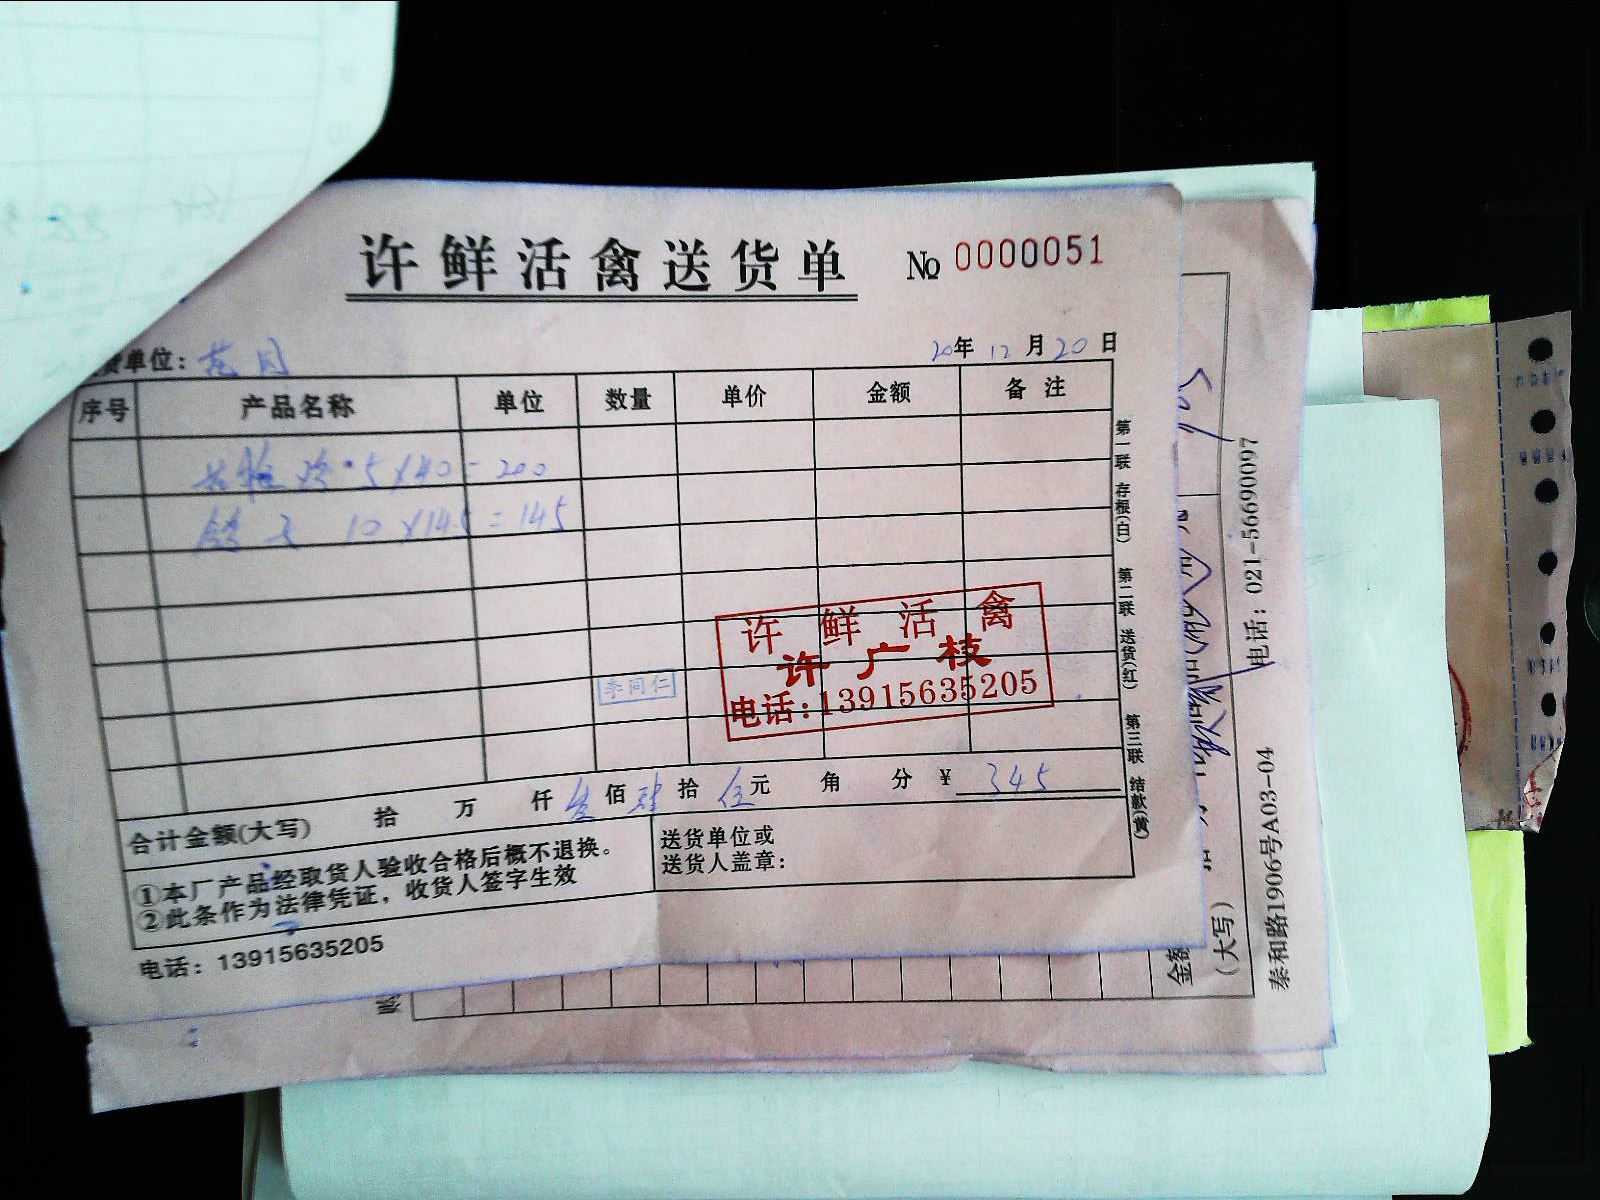 许鲜活禽送货单 № 0000051
单位：
20年 12月 20日
序号 产品名称 单位 数量 单价 金额 备注
5×40=200
10×145=145
李同仁
许鲜活禽
许广枝
电话:13915635205
合计金额(大写) 拾 万 仟 佰肆拾伍元 角 分 ¥ 345
①本厂产品经取货人验收合格后概不退换。
②此条作为法律凭证，收货人签字生效
送货单位或
送货人盖章：
电话：13915635205
第一联 存根(白) 第二联 送货(红) 第三联 结款(黄)
电话：021-56690097
泰和路1906号A03-04
(大写)
金额